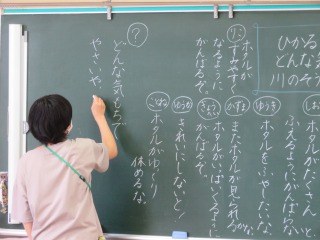 ひかる
どんな気
川のそう
しお
ホタルがたくさん
ふえるようにがんばらない
と
ゆうき
ホタルをふやしたいな。
かずよ
またホタルが見られるかな。
ホタルがいっぱいくるように
がんばるぞ。
ゆうか
きれいにしないと！
こはね
ホタルがゆっくり
休めるな。
りこ
ホタルが
すみやすく
なるように
がんばるぞ。
？
どんな気もちで
やさいや